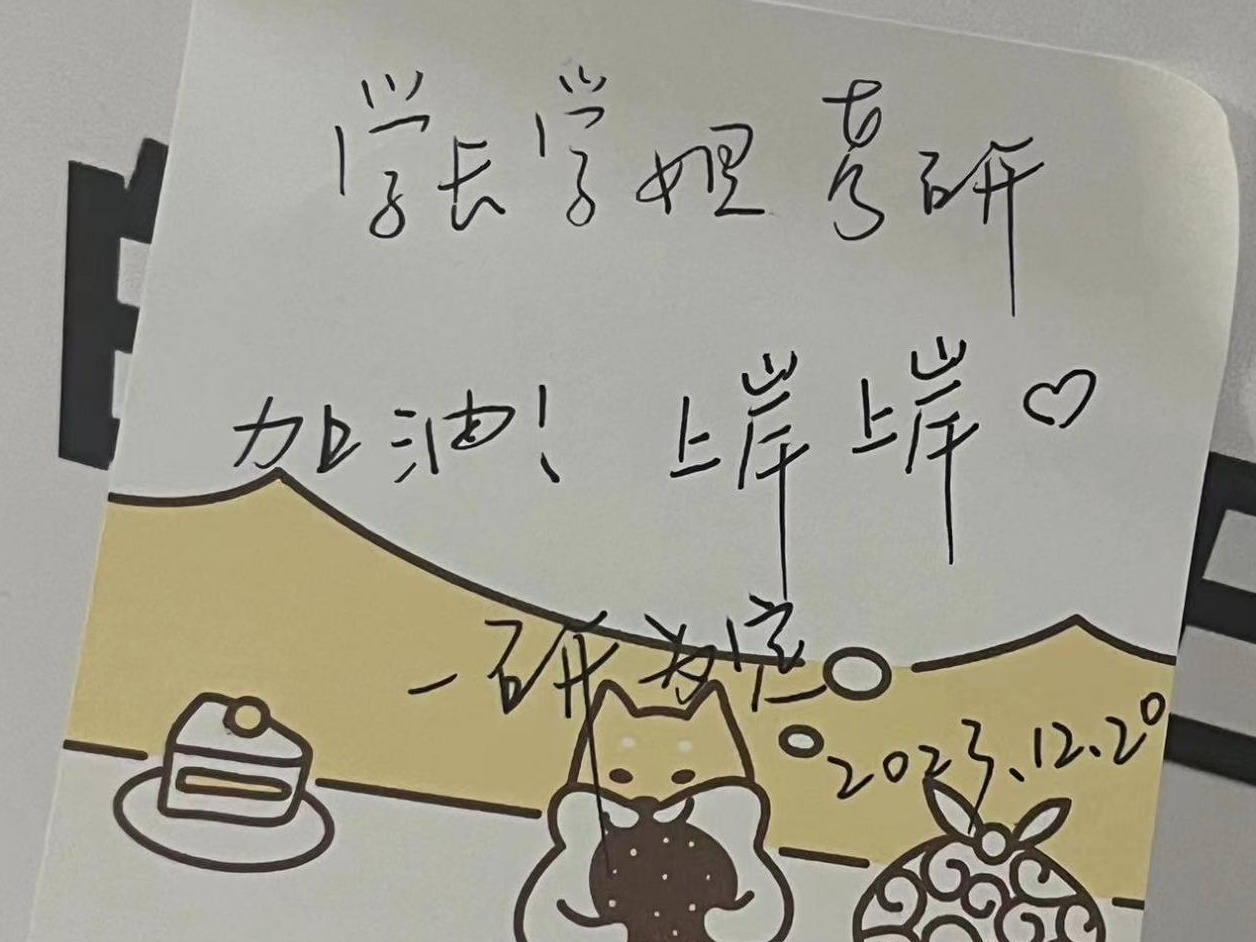 学长学姐考研
加油！ 上岸上岸♡
一研为定
2023.12.20